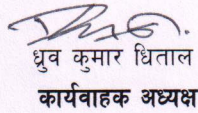 ध्रुव कुमार धिताल
कार्यवाहक अध्यक्ष